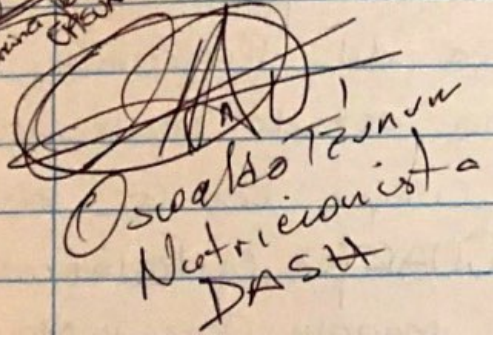 Oswaldo Tzunun
Nutricionista
DASH